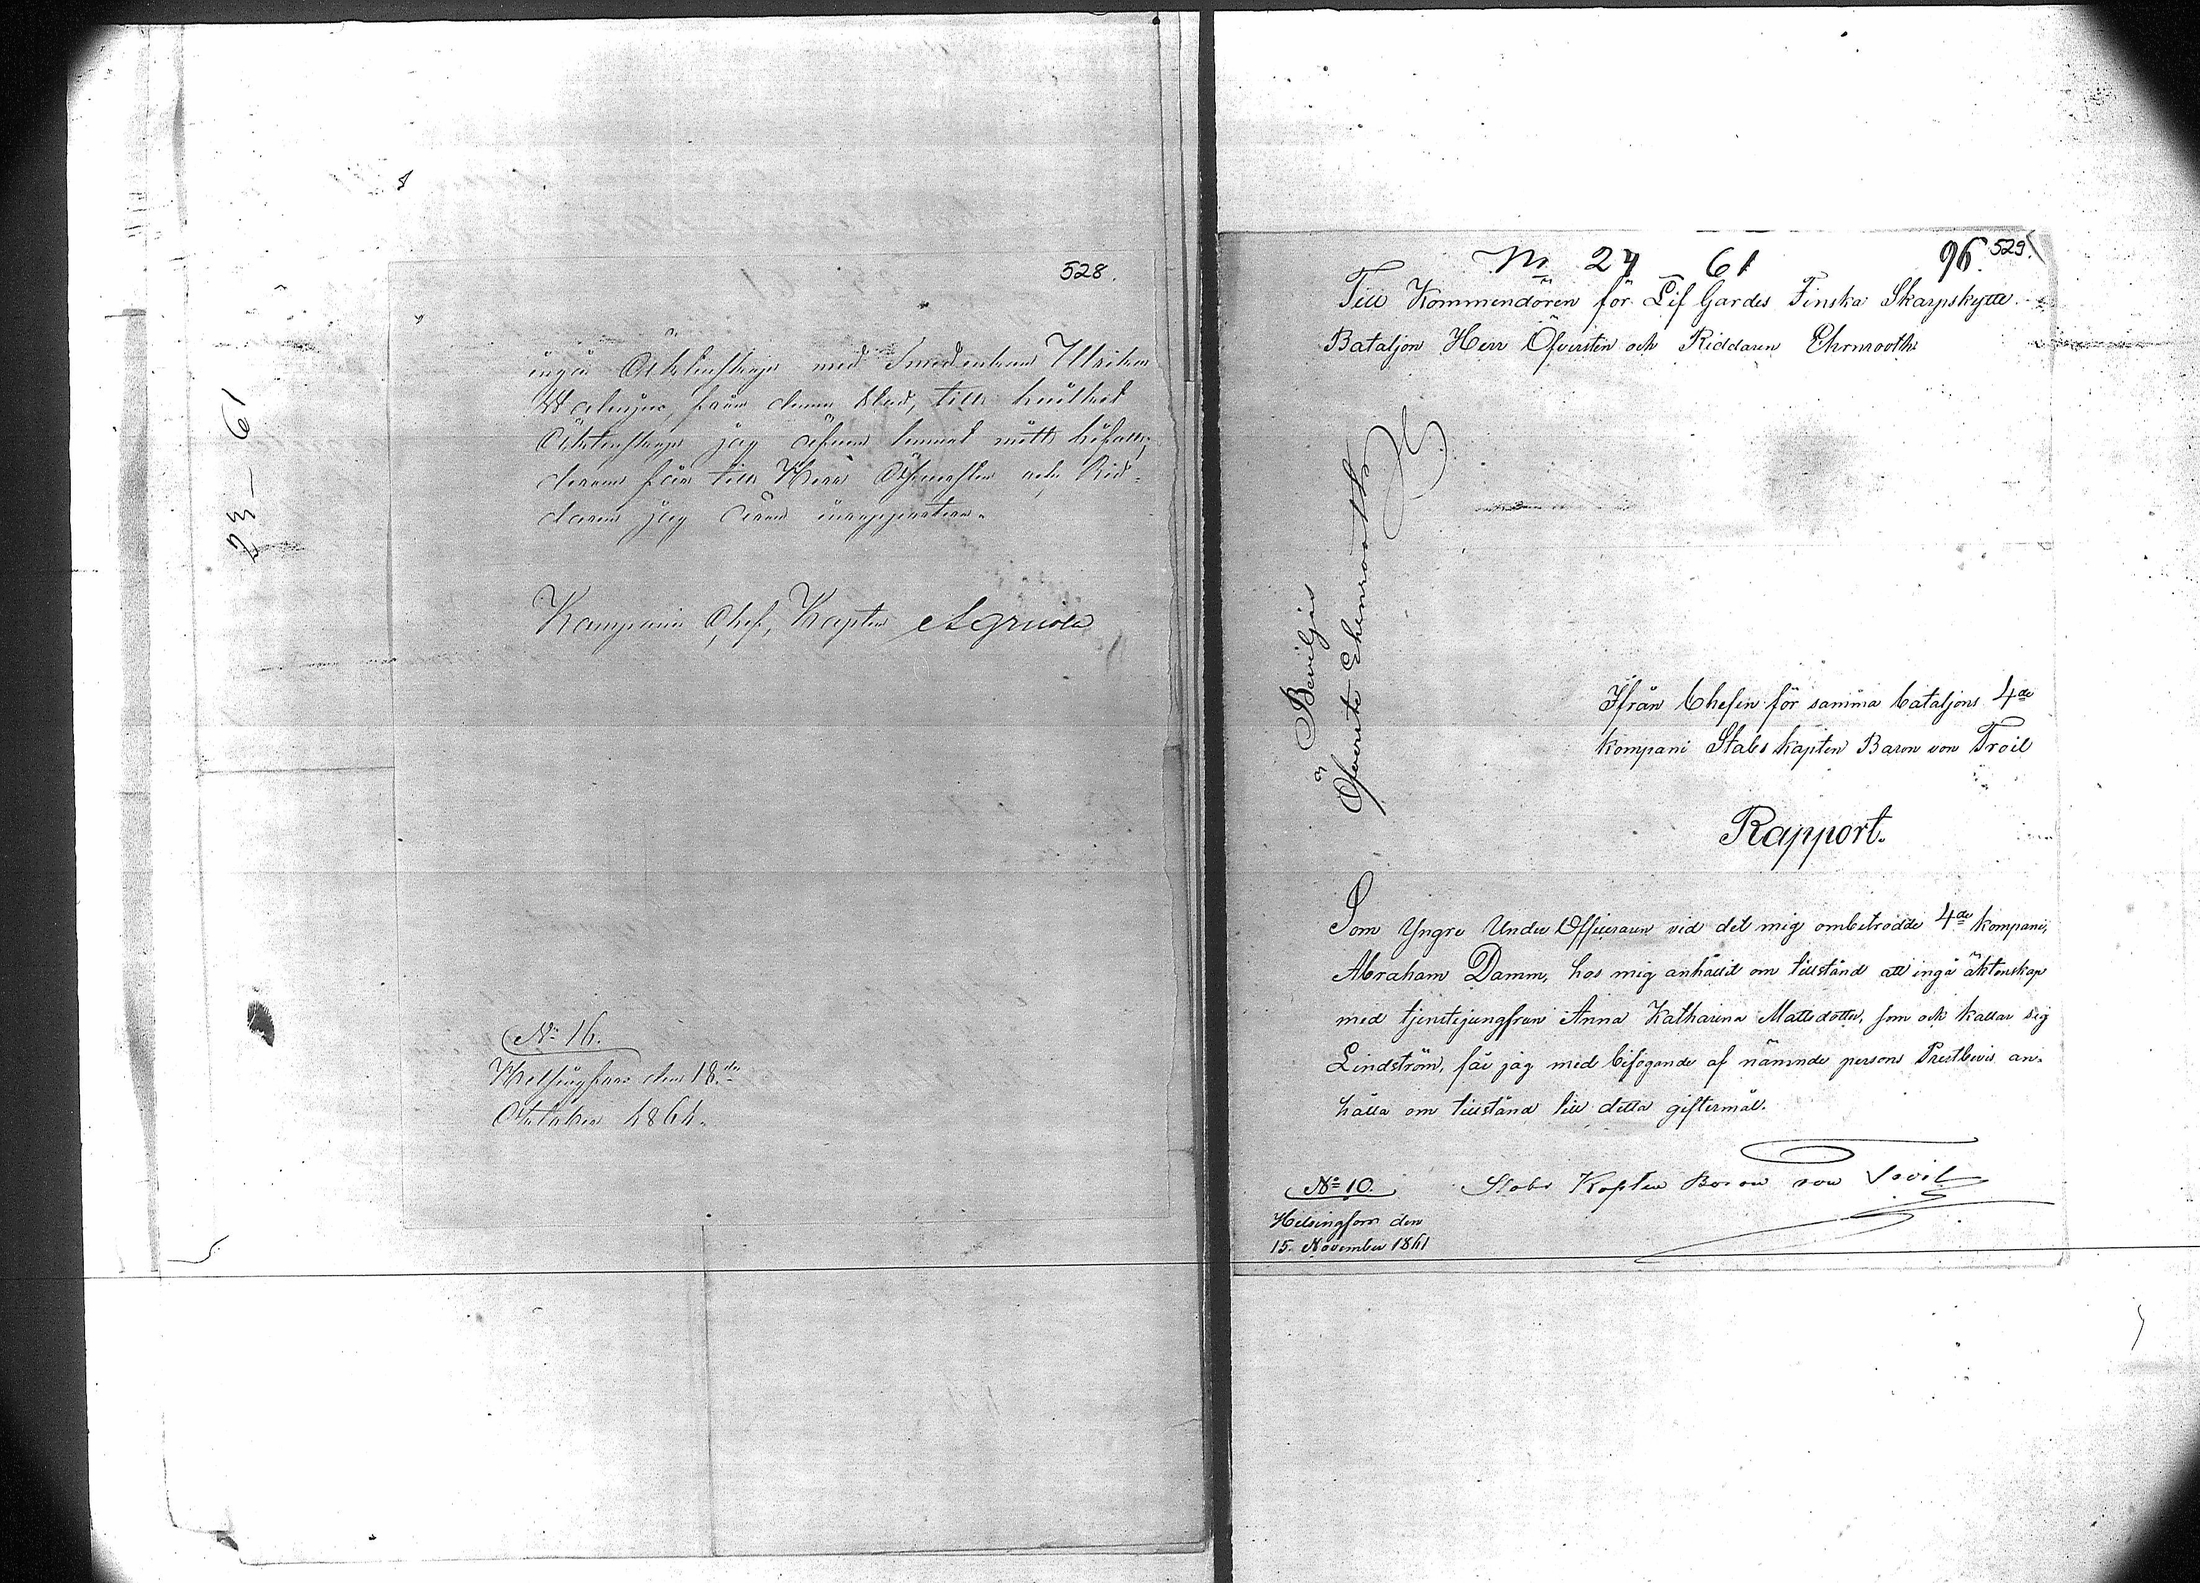 528.
ingå Äktenskap med Smedenkan Ulrika
från denna Stad, till hvilket
Äktenskap jag äfven lemnat mitt bifall,
derom får till Herr Öfversten och Rid-
daren jag äran inrapportera.
Kompanie Chef, Kapten Agricola
No 16.
Helsingfors den 18de
Oktober 1861.
23 - 61
No 24 61 96. 529.
Till Kommendören för Lif Gardes Finska Skarpskytte
Bataljon Herr Öfversten och Riddaren Ehrnrooth
Beviljas
Öfverste Ehrnrooth
Ifrån Chefen för samma bataljons 4de
kompani Stabs kapten Baron von Troil
Rapport.
Som Yngre Under Officeraren vid det mig ombetrodde 4de kompani,
Abraham Damm, hos mig anhållit om tillstånd att ingå äktenskap
med tjenstejungfrun Anna Katharina Mattsdotter, som ock kallar sig
Lindström, får jag med bifogande af nämnde persons Prestbevis an-
hålla om tillstånd till detta giftermål.
Stabs Kapten Baron von Troil
No 10.
Helsingfors den
15. November 1861